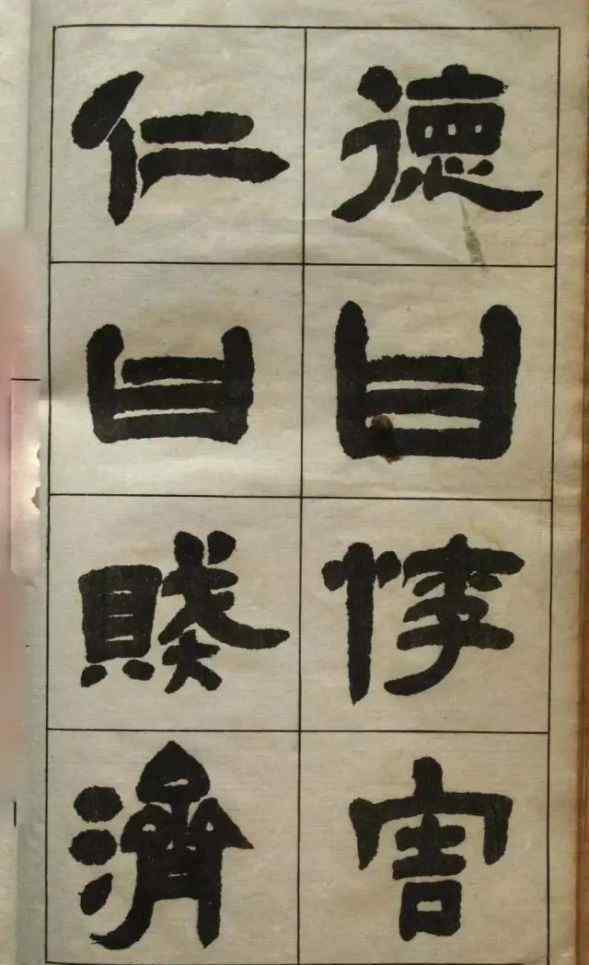 德曰悖害
仁曰賊濟